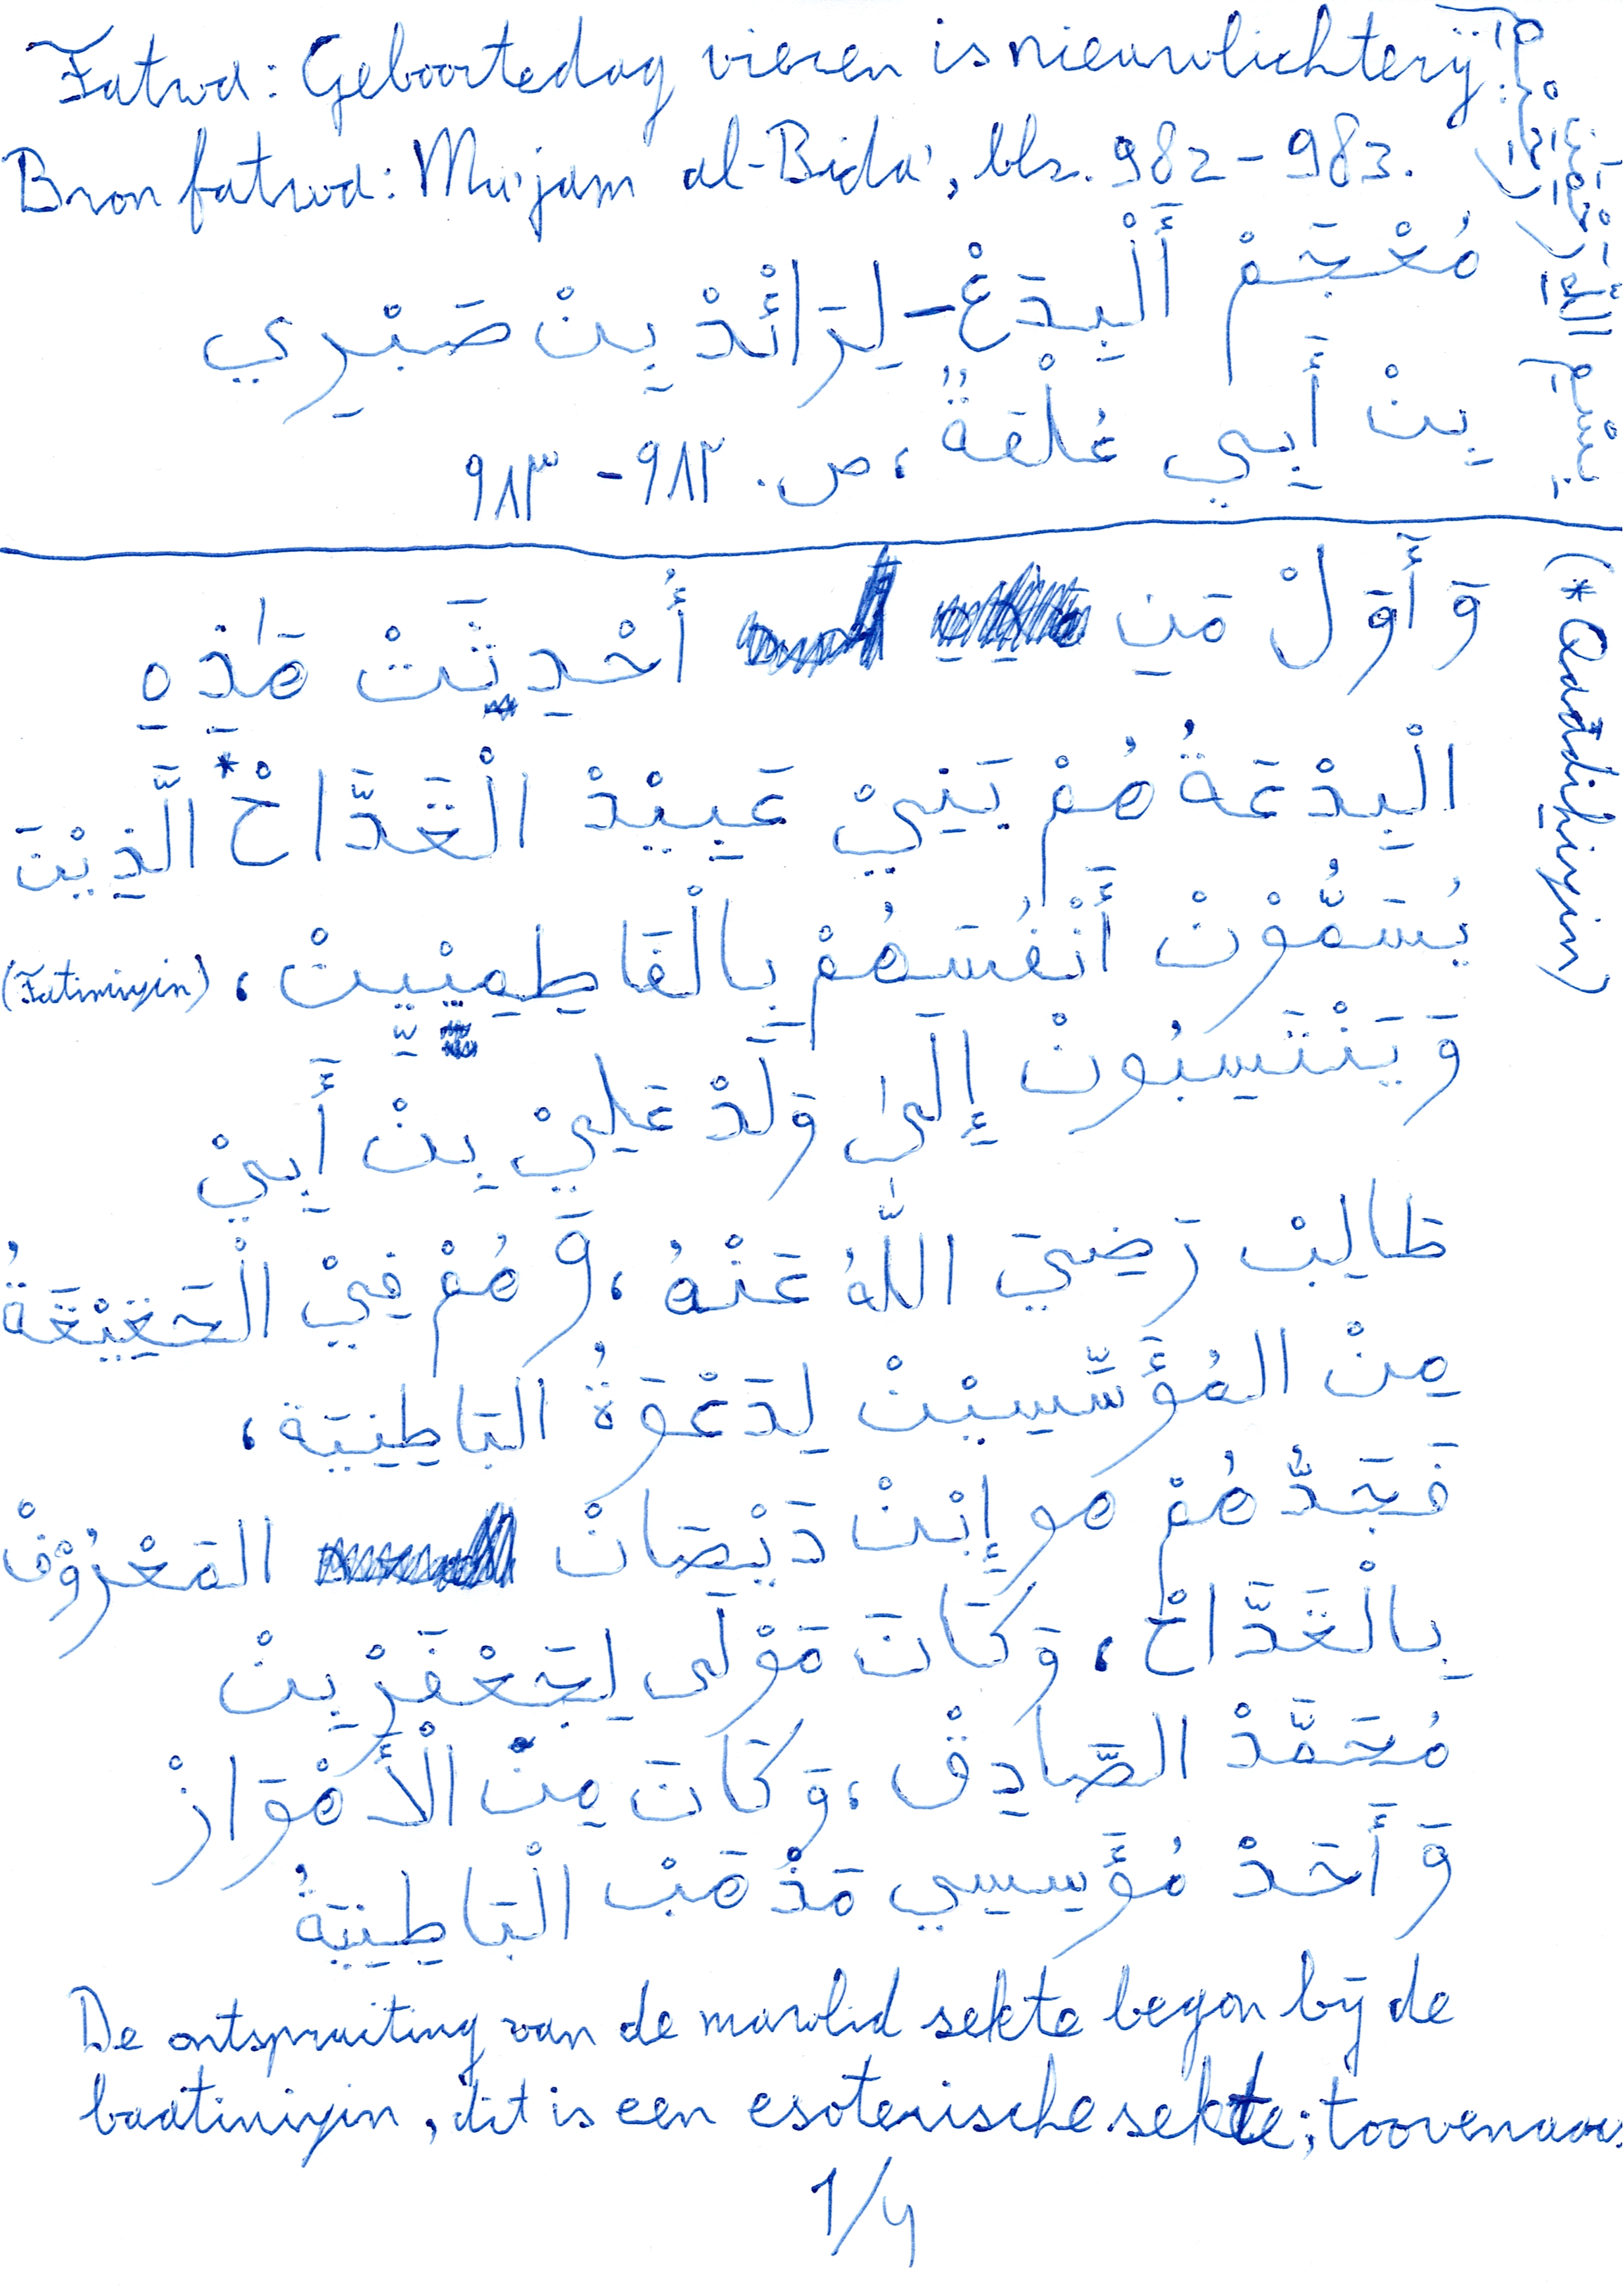 Fatwa: Geboortedag vieren is nieuwlichterij.
Bron fatwa: Mu'jam al-Bida', blz. 982 - 983.
بِسْمِ اللَّهِ الرَّحْمَٰنِ الرَّحِيْمِ
مُعْجَمْ أَلْبِدَعْ - لِرَائَدْ بِنْ صَبْرِي
بِنْ أَبِي عُلْفَةٌ، ص. ٩٨٢ - ٩٨٣
وَ أَوَلْ مَن أُحْدِثَتْ هَٰذِهِ
الْبِدْعَةُ هُمْ بَنِيْ عَبِيْدْ الْقَدَّاحْ* الَّذِيْنَ
(* Qaddihiyin)
يُسَمُّوْنْ أَنْفُسَهُمْ بِالْفَاطِمِيْيِنْ، (Fatimiyin)
وَ يَنْتَسِبُونْ إِلَىٰ وَلَدْ عَلِيْ بِنْ أَبِيْ
طَالِبْ رَضِيَ اللَّهُ عَنْهُ، وَ هُمْ فِيْ الْحَقِيْقَةُ
مِنْ المُؤَسَّسِيْنْ لِدَعْوَةُ البَاطِنِيَة،
فَجَدُّهُمْ هو إِبْنْ دَيْصَانْ المَعْرُوْفْ
بِالْقَدَّاحْ، وَكَانَ مَوْلَى لِجَعْفَرْ بِنْ
مُحَمَّدْ الصَّادِقْ، وَكَانَ مِنْ الْأَهْوَازْ
وَ أَحَدْ مُؤَسِسِي مَذْهَبْ الْبَاطِنِيَةُ
De ontspruiting van de mawlid sekte begon bij de
baatiniyin, dit is een esoterische sekte; toovenaars
1/4